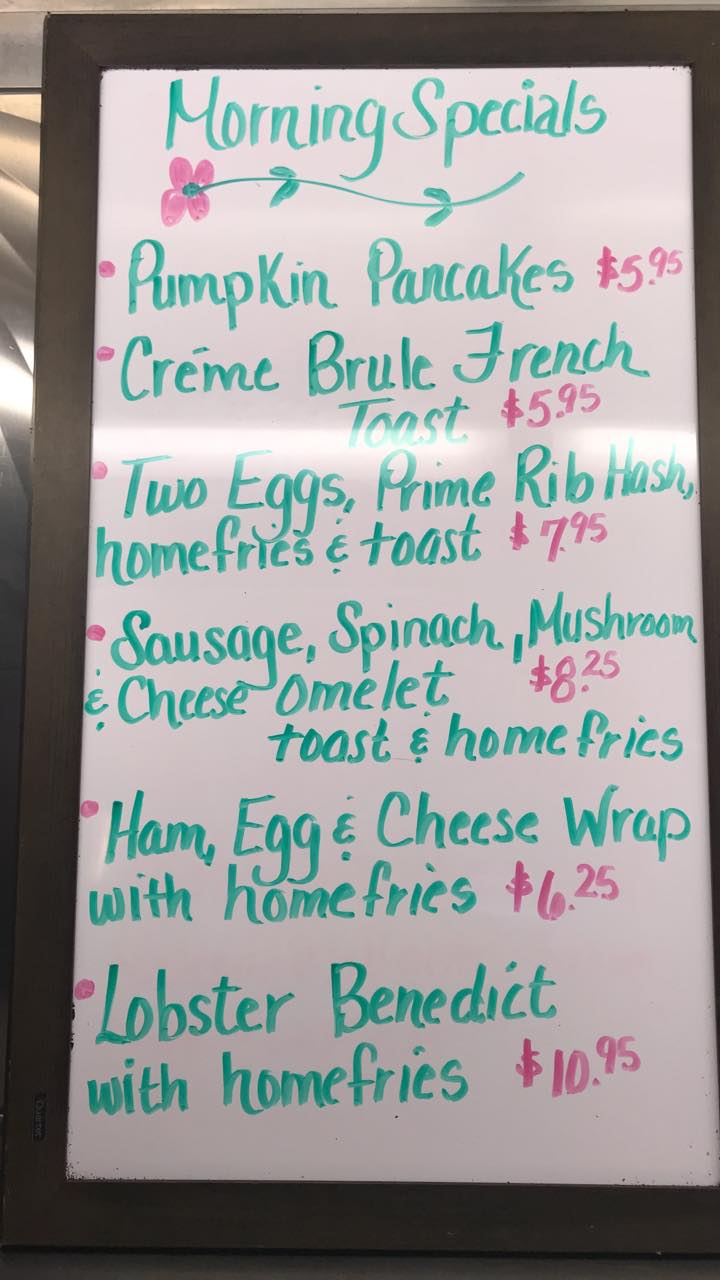 Morning Specials
• Pumpkin Pancakes $5.95
• Créme Brule French
Toast $5.95
• Two Eggs, Prime Rib Hash,
homefries & toast $7.95
• Sausage, Spinach, Mushroom
& Cheese omelet $8.25
toast & homefries
• Ham, Egg & Cheese Wrap
with homefries $6.25
• Lobster Benedict
with homefries $10.95
Quartet